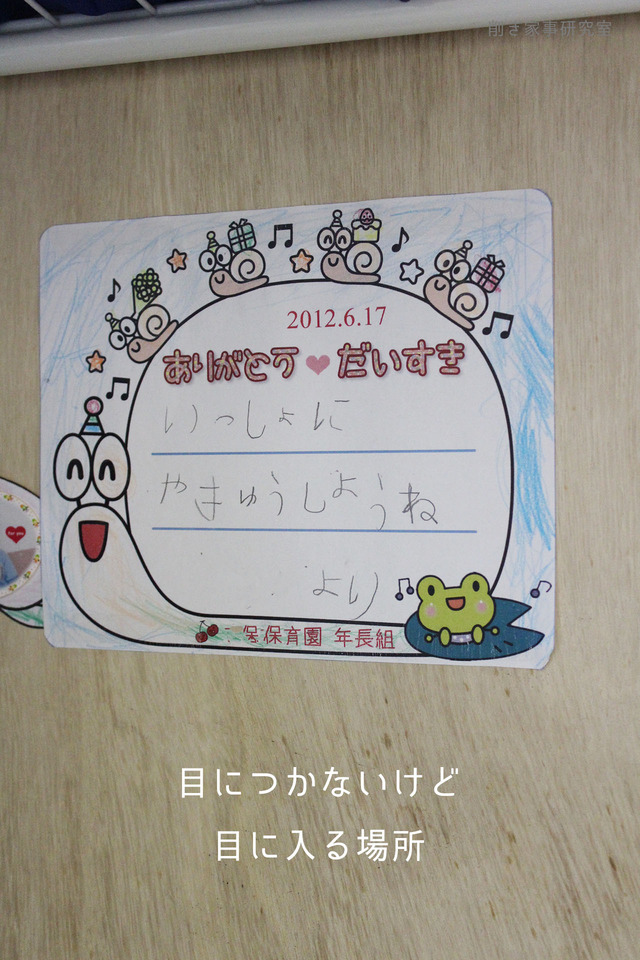 削ぎ家事研究室
2012.6.17
ありがとう♥だいすき
いっしょに
やきゅうしようね
より
保育園 年長組
for you
目につかないけど
目に入る場所